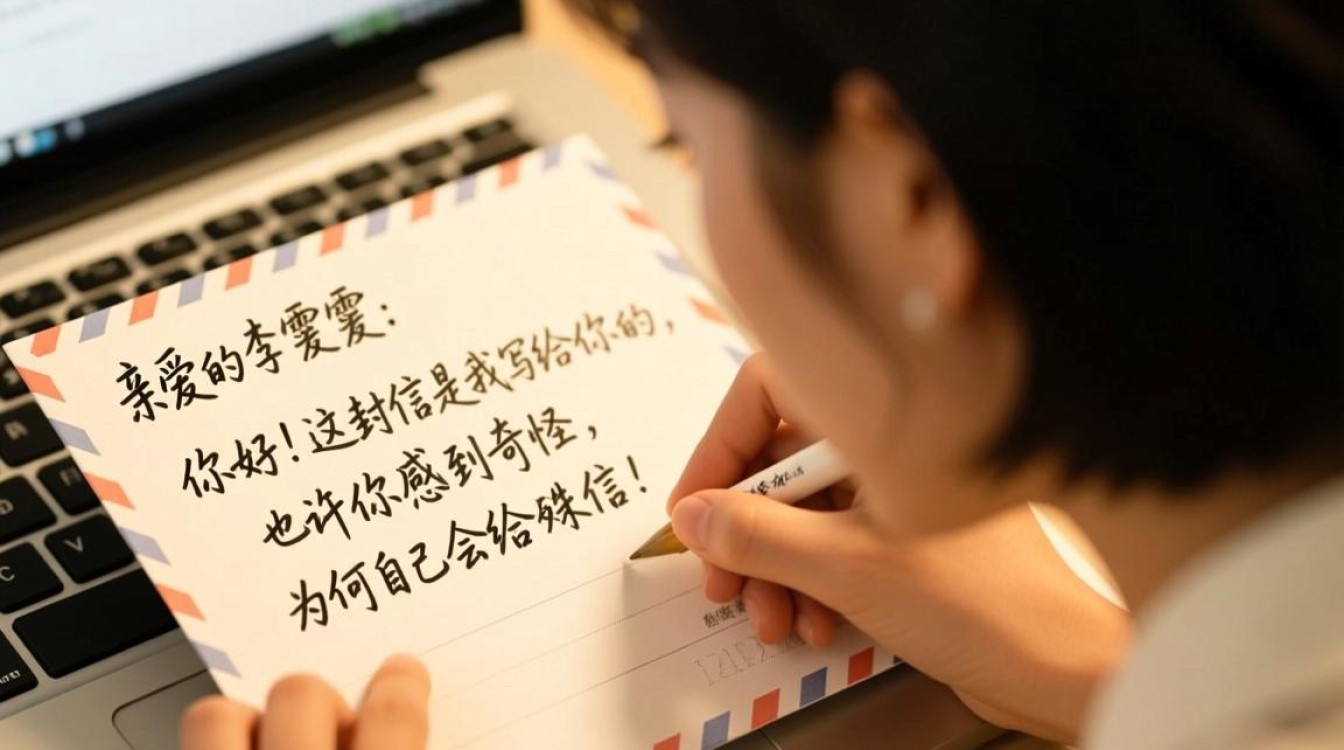 亲爱的李雯雯：
你好！这封信是我写给你的，
也许你感到奇怪，
为何自己会给殊信！